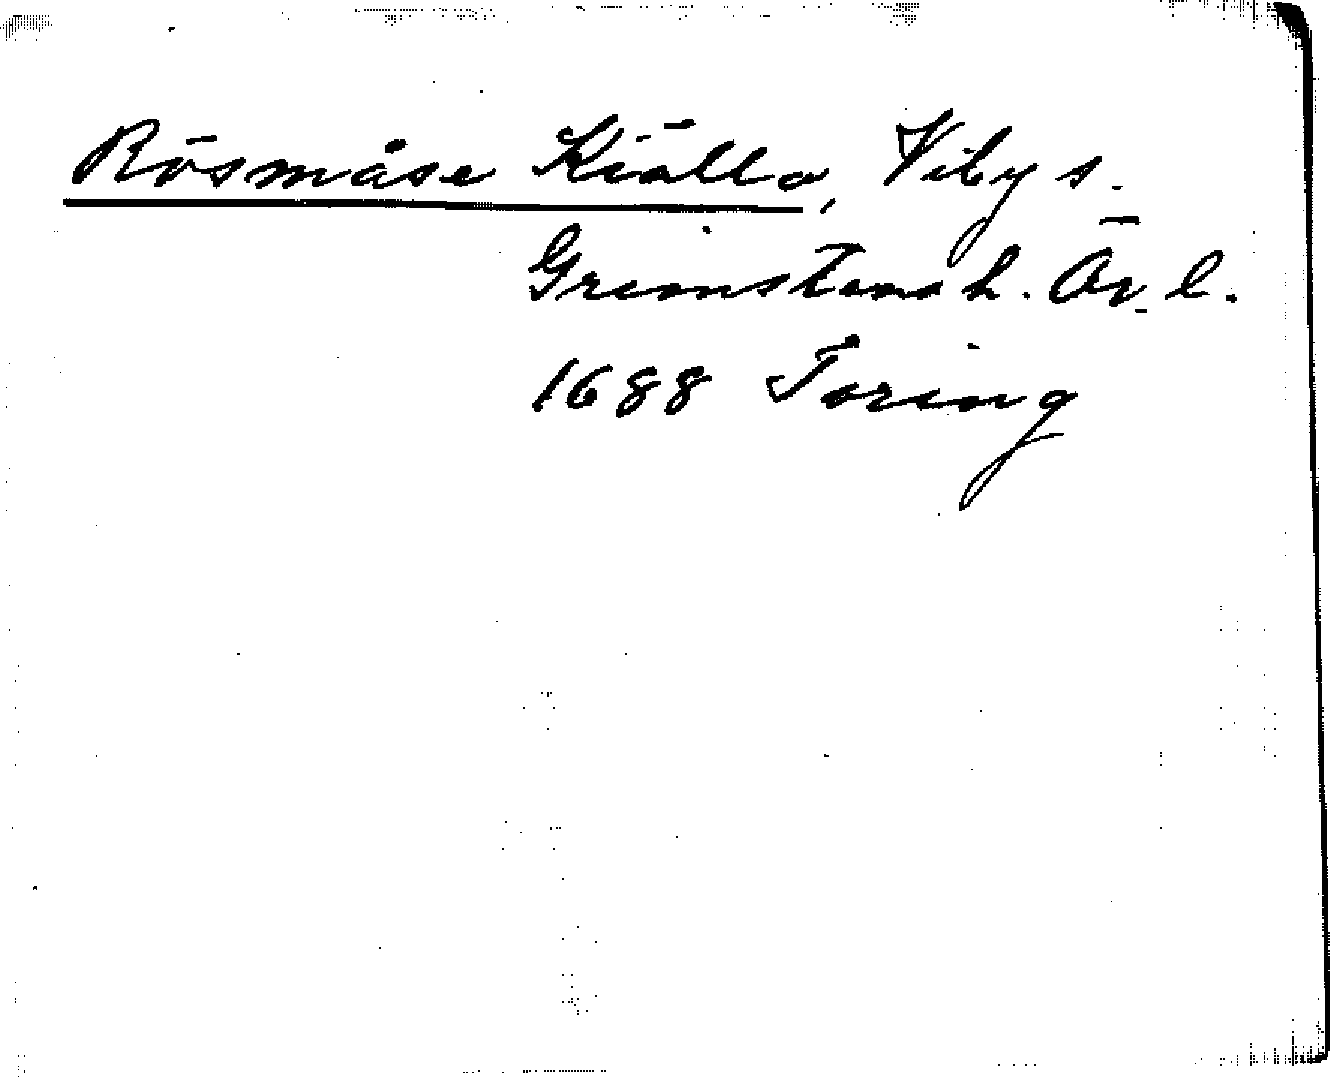 Rösmåse Kiälla, Viby s.
Grimstens h. Ör. l.
1688 Toring